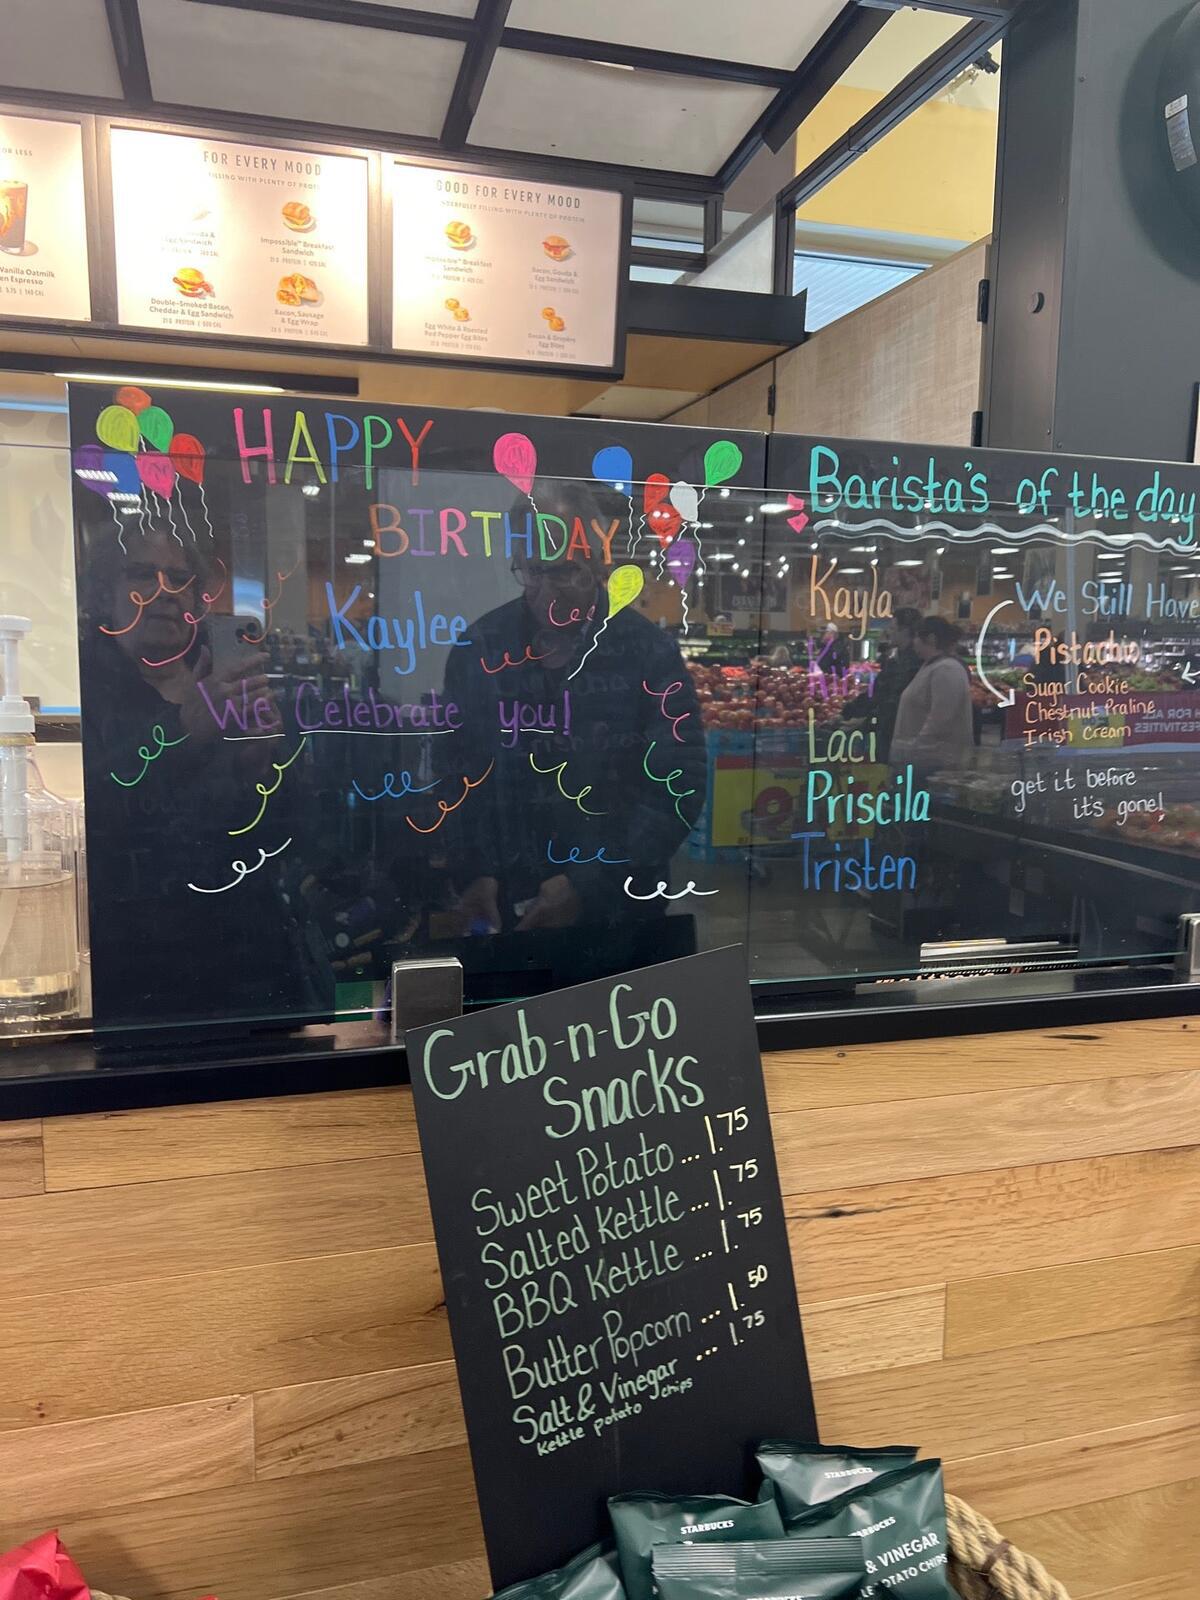 OR LESS
Vanilla Oatmilk
en Espresso
FOR EVERY MOOD
FILLING WITH PLENTY OF
Egg Sandwich
Impossible™ Breakfast
Sandwich
Double-Smoked Bacon,
Cheddar & Egg Sandwich
Bacon, Sausage
& Egg Wrap
GOOD FOR EVERY MOOD
FILLING WITH PLENTY OF PROTEIN
Impossible™ Breakfast
Sandwich
Bacon, Gouda &
Egg Sandwich
Egg White & Roasted
Red Pepper Egg Bites
Bacon & Gruyère
Egg Bites
HAPPY
BIRTHDAY
Kaylee
We Celebrate you!
Barista's of the day
Kayla
Kim
Laci
Priscila
Tristen
We Still Have
Pistachio
Sugar Cookie
Chestnut Praline
Irish Cream
get it before
it's gone!
Grab-n-Go
Snacks
Sweet Potato... 1.75
Salted Kettle... 1.75
BBQ Kettle ... 1.75
Butter Popcorn ... 1.50
Salt & Vinegar ... 1.75
Kettle potato chips
STARBUCKS
STARBUCKS
STARBUCKS
& VINEGAR
POTATO CHIPS
STARBUCKS